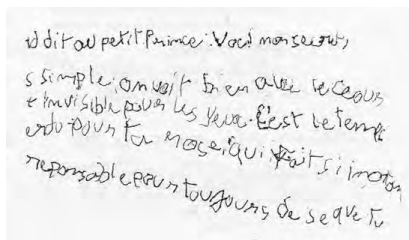 d dit au petit Prince. Voci mon secret,
s simple, on voit bien avec le ceour
t invisible pour les yeux. C'est le temps
erdu pour ta rose qui fait si impotan
reponsable pour toujours de se que tu